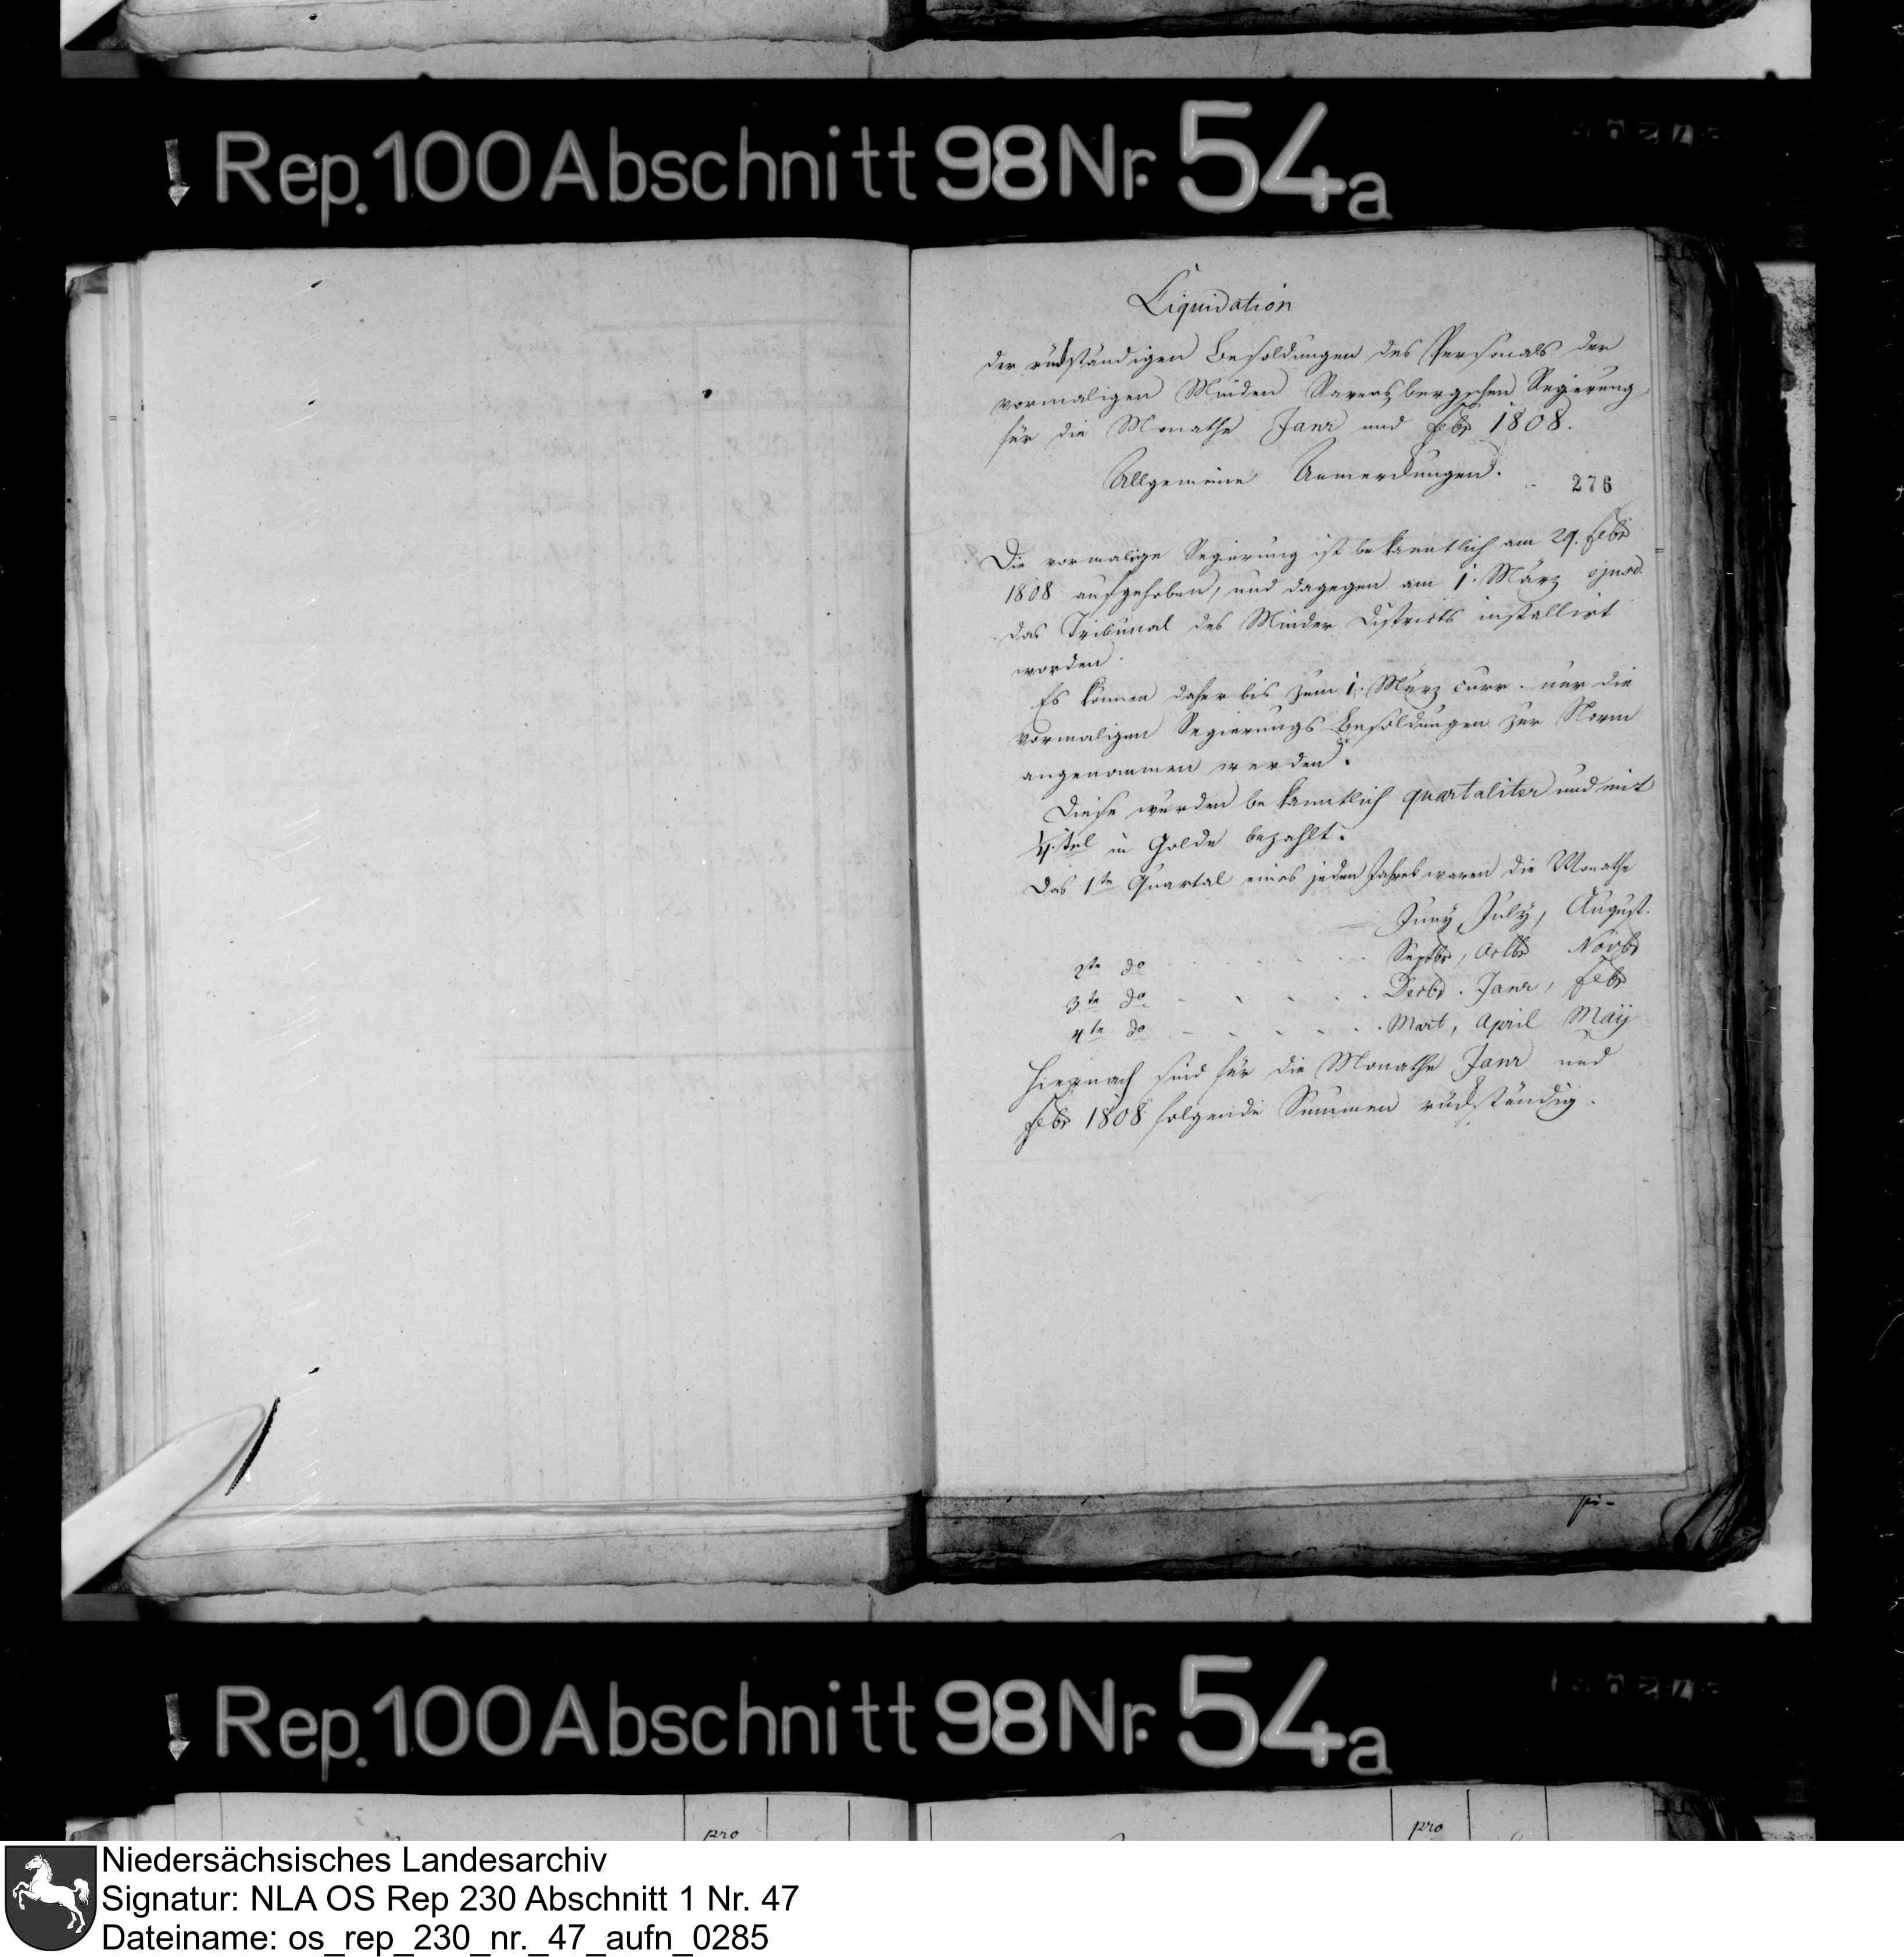 Rep. 100 Abschnitt 98 Nr. 54a
Liquidation
der rückständigen Besoldungen des Personals der
vormaligen Minden Ravensbergschen Regierung,
für die Monathe Janr und Febr 1808.
Allgemeine Anmerckungen.
276
Die vormalige Regierung ist bekanntlich am 29. Febr
1808 aufgehoben, und dagegen am 1. März ejusd.
das Tribunal des Minder Districts installirt
worden.
Es können daher bis zum 1. März curr. nur die
vormaligen Regierungs Besoldungen zur Norm
angenommen werden.
Diese wurden bekanntlich quartaliter und mit
1/4.tel in Golde bezahlt.
Das 1te Quartal eines jeden Jahres waren die Monathe
Juny, July, August.
2te do Septbr, Octbr Novbr
3te do Decbr. Janr, Febr
4te do Mart, April Maÿ
Hiernach sind für die Monathe Janr und
Febr 1808 folgende Summen rückständig.
Rep. 100 Abschnitt 98 Nr. 54a
pro
pro
Niedersächsisches Landesarchiv
Signatur: NLA OS Rep 230 Abschnitt 1 Nr. 47
Dateiname: os_rep_230_nr._47_aufn_0285